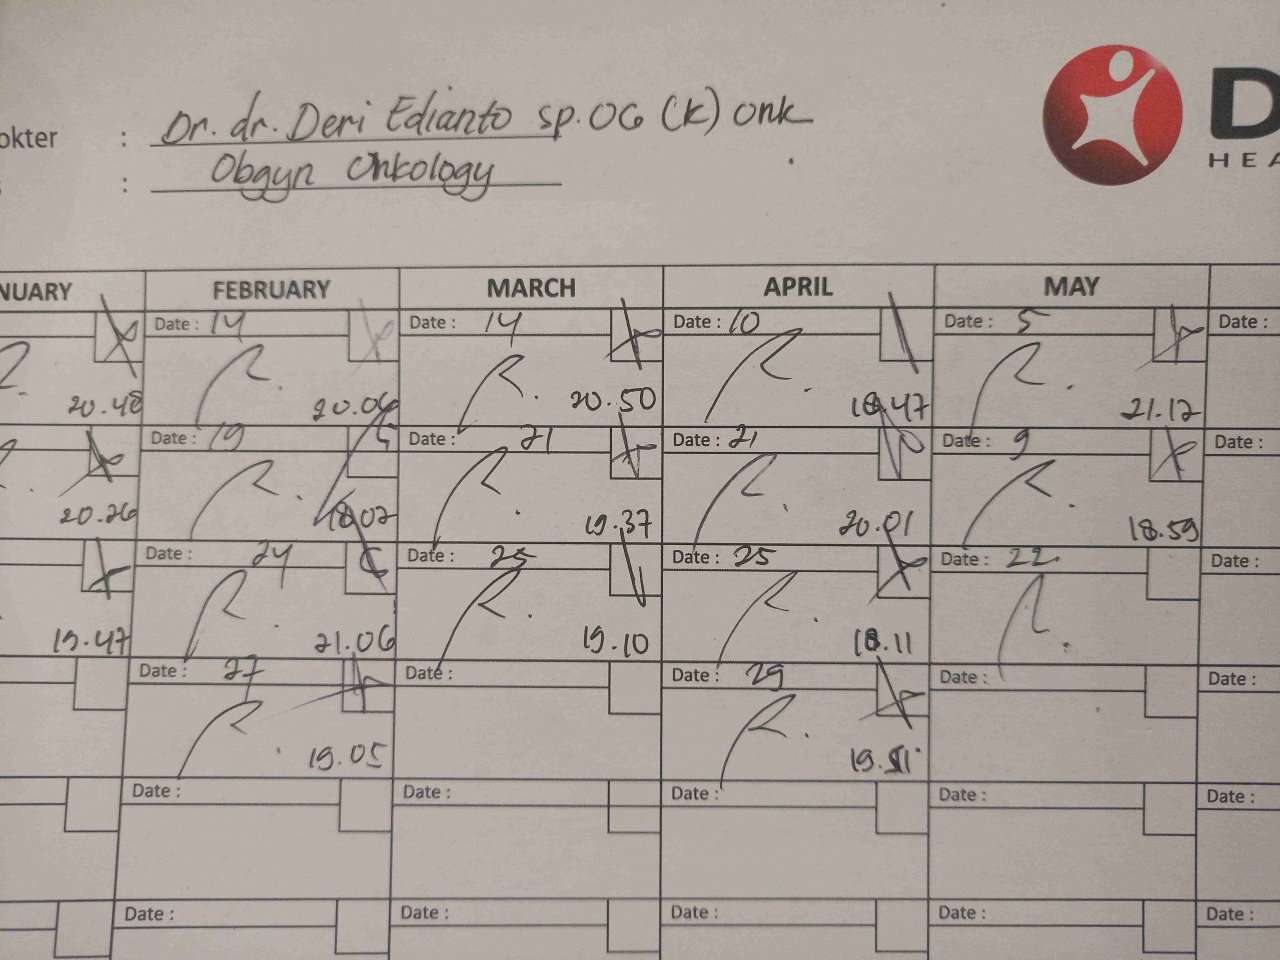 okter : Dr. dr. Deri Edianto sp.OG (K) Onk
: Obgyn Onkology
D
HEA
NUARY FEBRUARY MARCH APRIL MAY
Date : 14 Date : 14 Date : 10 Date : 5 Date :
20.48 20.06 20.50 18.47 21.12
Date : 19 Date : 21 Date : 21 Date : 9 Date :
20.26 18.02 19.37 20.01 18.59
Date : 24 Date : 25 Date : 25 Date : 22 Date :
19.47 21.06 19.10 18.11
Date : 27 Date : Date : 29 Date : Date :
19.05
Date : Date : Date : Date : Date :
Date : Date : Date : Date : Date :